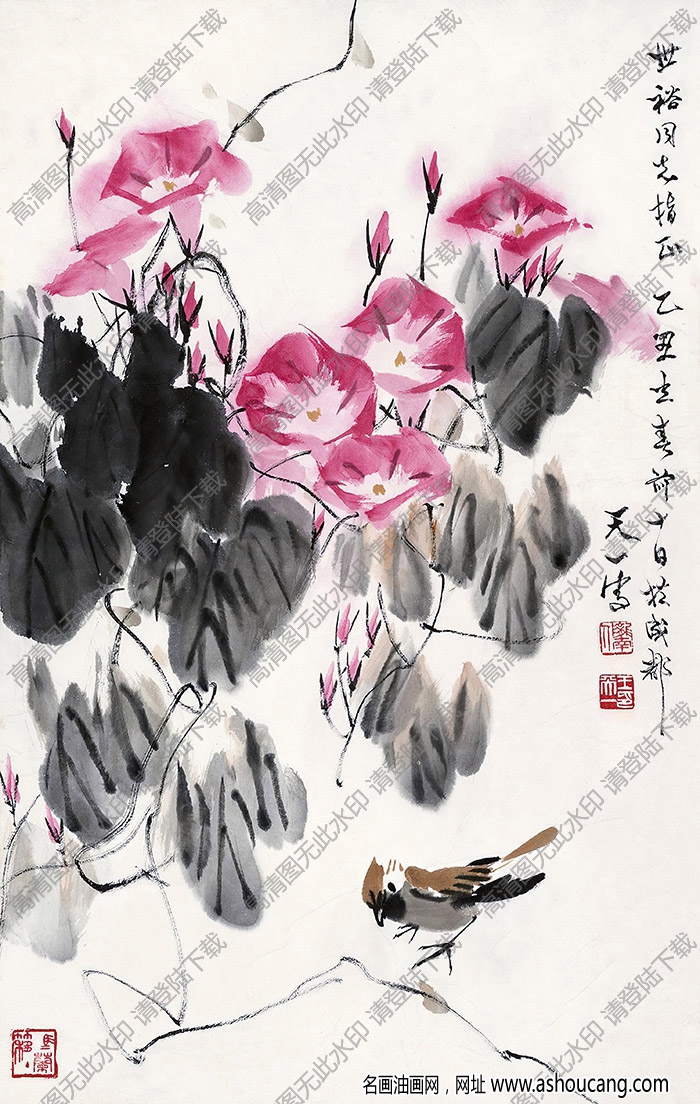 世裕同志指正 乙丑立春前十日於成都
天一写
高清图无此水印 请登陆下载
名画油画网，网址 www.ashoucang.com